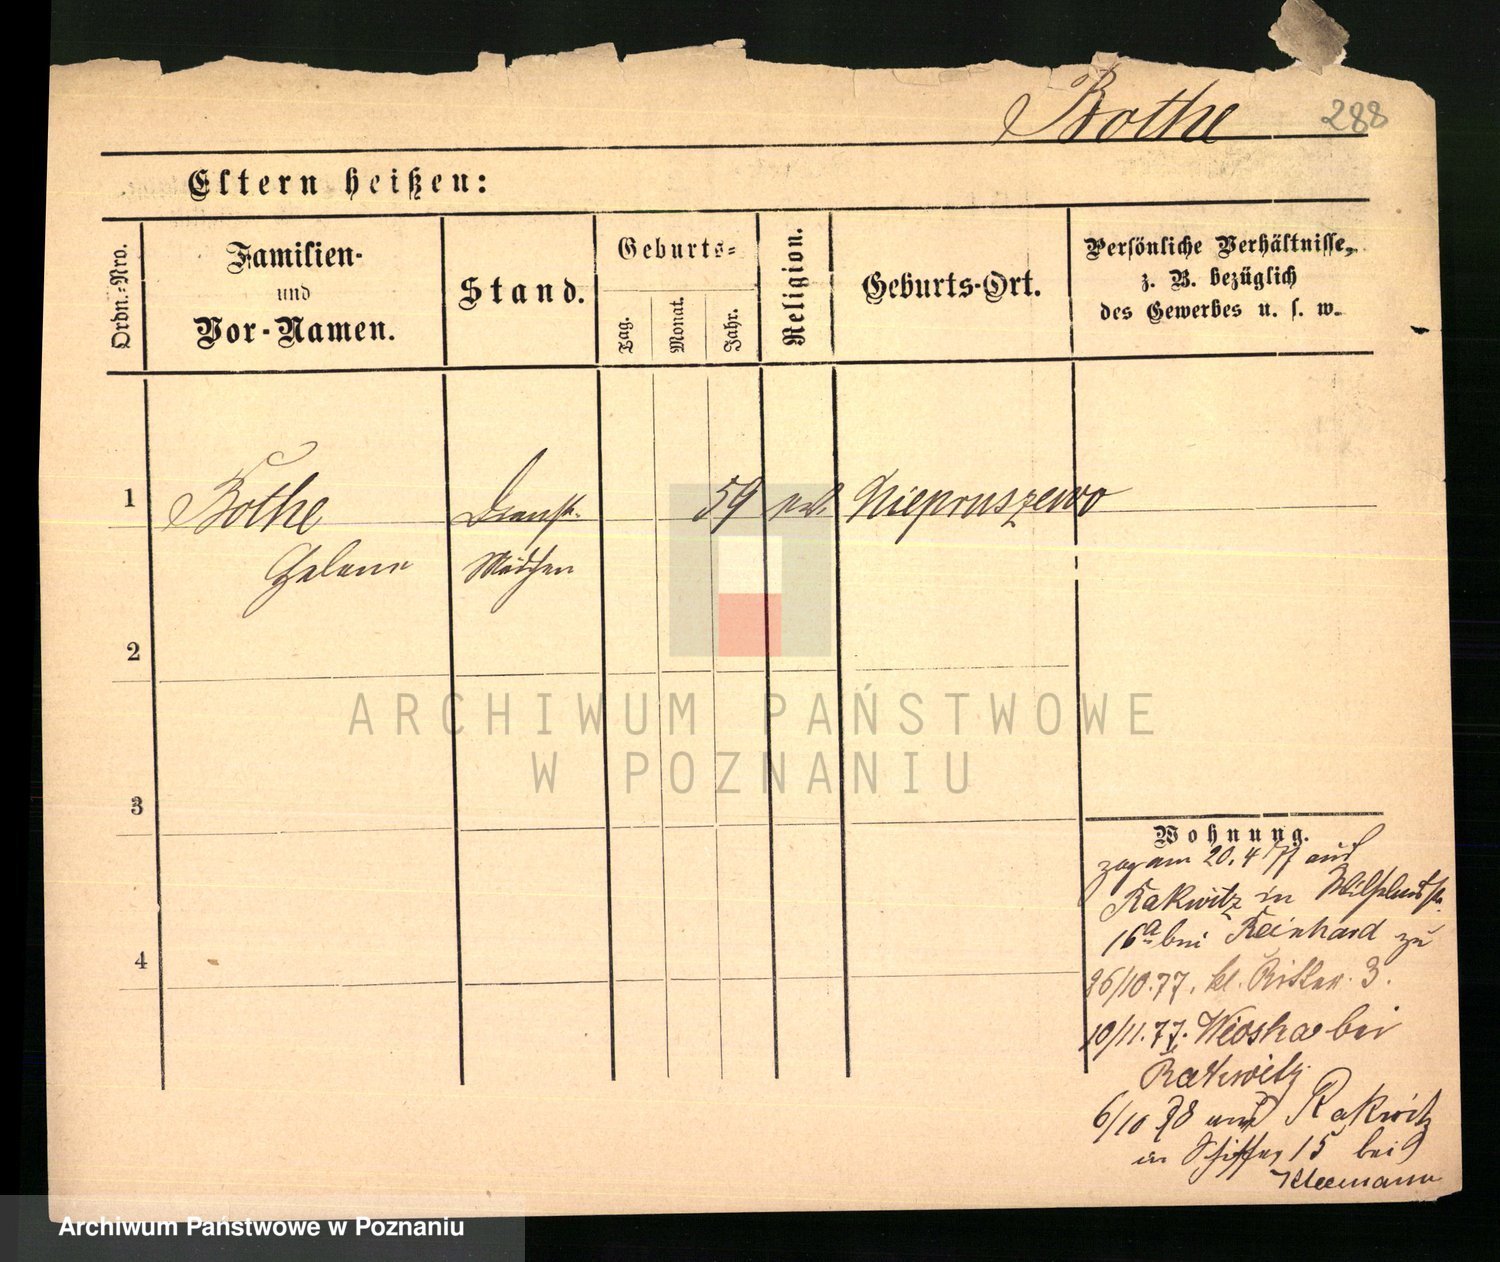 Bothe 288
Eltern heißen:
Ordn.-Nro.
Familien-
und
Vor-Namen.
Stand.
Geburts-
Tag.
Monat.
Jahr.
Religion.
Geburts-Ort.
Persönliche Verhältnisse,
z. B. bezüglich
des Gewerbes u. s. w.
1 Bothe Dienst- 59 Niepruszewo
Helene Mädchen
2
3
4
Wohnung.
zog am 20. 4 77 aus
Rakwitz in Wilhelmstr.
16a bei Reinhard zu
26/10.77. kl. Ritter. 3.
10/11.77. Wioska bei
Rakwitz
6/10 78 aus Rakwitz
in Schiffer 15 bei
Kleemann
ARCHIWUM PAŃSTWOWE
W POZNANIU
Archiwum Państwowe w Poznaniu